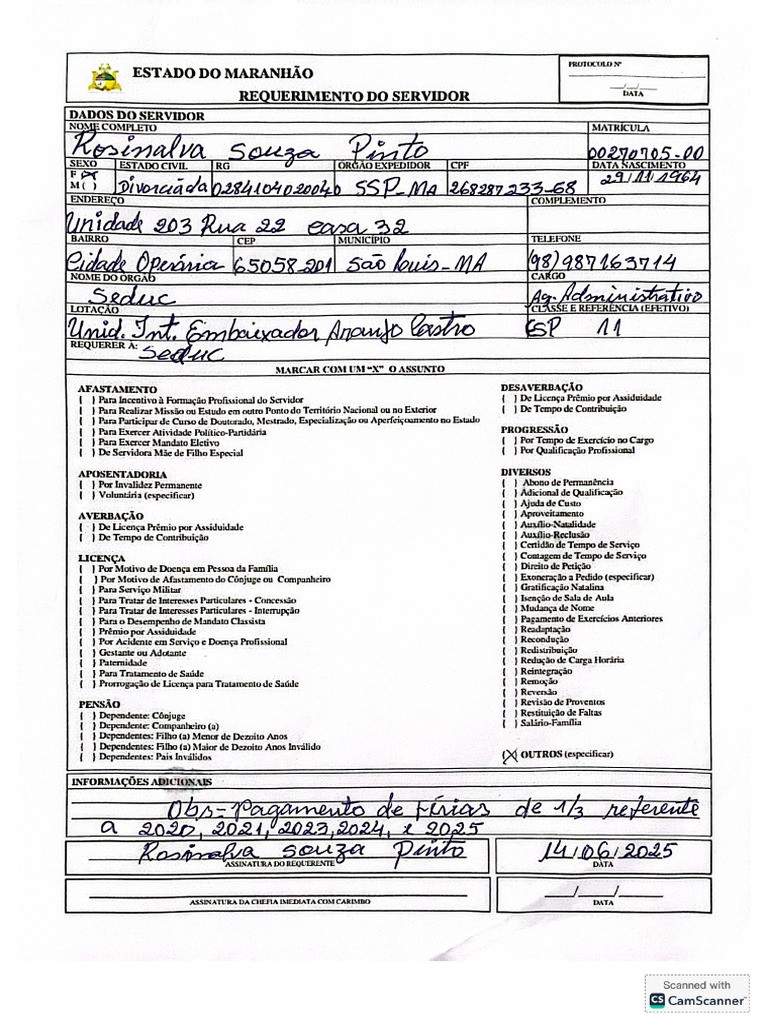 ESTADO DO MARANHÃO
REQUERIMENTO DO SERVIDOR
PROTOCOLO Nº
__/__/____
DATA
DADOS DO SERVIDOR
NOME COMPLETO MATRÍCULA
Rosinalva Souza Pinto 00270705-00
SEXO ESTADO CIVIL RG ÓRGÃO EXPEDIDOR CPF DATA NASCIMENTO
F (X) M ( ) Divorciada 0284104020040 SSP-MA 268287233-68 29/11/1964
ENDEREÇO COMPLEMENTO
Unidade 203 Rua 22 casa 32
BAIRRO CEP MUNICÍPIO TELEFONE
Cidade Operária 65058-201 São Luis-MA (98)987163714
NOME DO ÓRGÃO CARGO
Seduc Ag. Administrativo
LOTAÇÃO CLASSE E REFERÊNCIA (EFETIVO)
Unid. Int. Embaixador Araujo Castro ESP 11
REQUERER À: Seduc
MARCAR COM UM "X" O ASSUNTO
AFASTAMENTO
( ) Para Incentivo à Formação Profissional do Servidor
( ) Para Realizar Missão ou Estudo em outro Ponto do Território Nacional ou no Exterior
( ) Para Participar de Curso de Doutorado, Mestrado, Especialização ou Aperfeiçoamento no Estado
( ) Para Exercer Atividade Político-Partidária
( ) Para Exercer Mandato Eletivo
( ) De Servidora Mãe de Filho Especial
APOSENTADORIA
( ) Por Invalidez Permanente
( ) Voluntária (especificar)
AVERBAÇÃO
( ) De Licença Prêmio por Assiduidade
( ) De Tempo de Contribuição
LICENÇA
( ) Por Motivo de Doença em Pessoa da Família
( ) Por Motivo de Afastamento do Cônjuge ou Companheiro
( ) Para Serviço Militar
( ) Para Tratar de Interesses Particulares - Concessão
( ) Para Tratar de Interesses Particulares - Interrupção
( ) Para o Desempenho de Mandato Classista
( ) Prêmio por Assiduidade
( ) Por Acidente em Serviço e Doença Profissional
( ) Gestante ou Adotante
( ) Paternidade
( ) Para Tratamento de Saúde
( ) Prorrogação de Licença para Tratamento de Saúde
PENSÃO
( ) Dependente: Cônjuge
( ) Dependente: Companheiro (a)
( ) Dependentes: Filho (a) Menor de Dezoito Anos
( ) Dependentes: Filho (a) Maior de Dezoito Anos Inválido
( ) Dependentes: Pais Inválidos
DESAVERBAÇÃO
( ) De Licença Prêmio por Assiduidade
( ) De Tempo de Contribuição
PROGRESSÃO
( ) Por Tempo de Exercício no Cargo
( ) Por Qualificação Profissional
DIVERSOS
( ) Abono de Permanência
( ) Adicional de Qualificação
( ) Ajuda de Custo
( ) Aproveitamento
( ) Auxílio-Natalidade
( ) Auxílio-Reclusão
( ) Certidão de Tempo de Serviço
( ) Contagem de Tempo de Serviço
( ) Direito de Petição
( ) Exoneração a Pedido (especificar)
( ) Gratificação Natalina
( ) Isenção de Sala de Aula
( ) Mudança de Nome
( ) Pagamento de Exercícios Anteriores
( ) Readaptação
( ) Recondução
( ) Redistribuição
( ) Redução de Carga Horária
( ) Reintegração
( ) Remoção
( ) Reversão
( ) Revisão de Proventos
( ) Restituição de Faltas
( ) Salário-Família
(X) OUTROS (especificar)
INFORMAÇÕES ADICIONAIS
Obs-Pagamento de Férias de 1/3 referente
a 2020, 2021, 2023, 2024, e 2025
Rosinalva Souza Pinto 14/06/2025
ASSINATURA DO REQUERENTE DATA
__/__/____
ASSINATURA DA CHEFIA IMEDIATA COM CARIMBO DATA
Scanned with
CS CamScanner